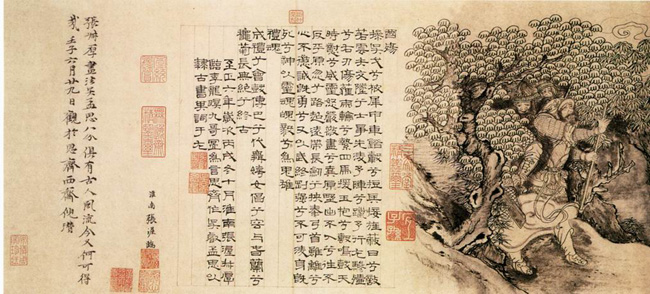 國殤
操吳戈兮被犀甲車錯轂兮短兵接旌蔽日兮敵
若雲矢交墜兮士爭先凌余陣兮躐余行左驂殪
兮右刃傷霾兩輪兮縶四馬援玉枹兮擊鳴鼓天
時懟兮威靈怒嚴殺盡兮棄原壄出不入兮往不
反平原忽兮路超遠帶長劒兮挾秦弓首雖離兮
心不懲誠既勇兮又以武終剛強兮不可凌身既
死兮神以靈魂魄毅兮為鬼雄
成禮兮會鼓傳芭兮代舞姱女倡兮容與春蘭兮
秋菊長無絕兮終古
至正六年歲次丙戌冬十月淮南張渥叔厚
臨李龍眠九哥圖為言思齊作吳叡孟思以
隸古書其詞于左
淮南張渥臨
張叔厚畫法吳孟思八分俱有古人風流今又何可得
歲壬子六月廿九日觀於思齊西齋倪瓚